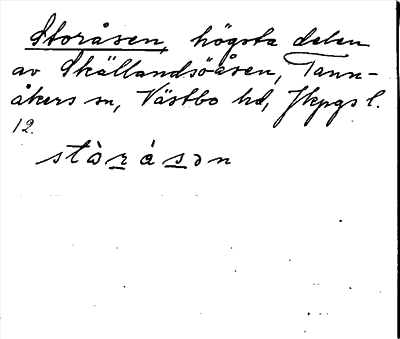 Storåsen, högsta delen
av Skällandsöåsen, Tann-
åkers sn, Västbo hd, Jkpgs l.
12.
stòråsən